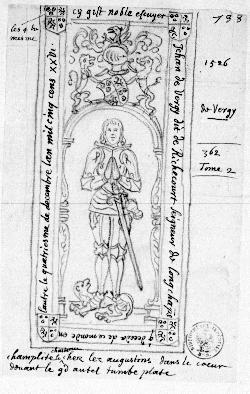 cy gist noble escuyer
Jehan de Vergy dit de Richecourt seigneur de longchaps
q decéda de ce monde en
lautre le quatriesme de decembre lan mil cinq cens XXVI.
les 4 de
mesme
733
1526
de Vergy
362
Tome 2
champlitte le chez les augustins dans le coeur
devant le gd autel tumbe plate